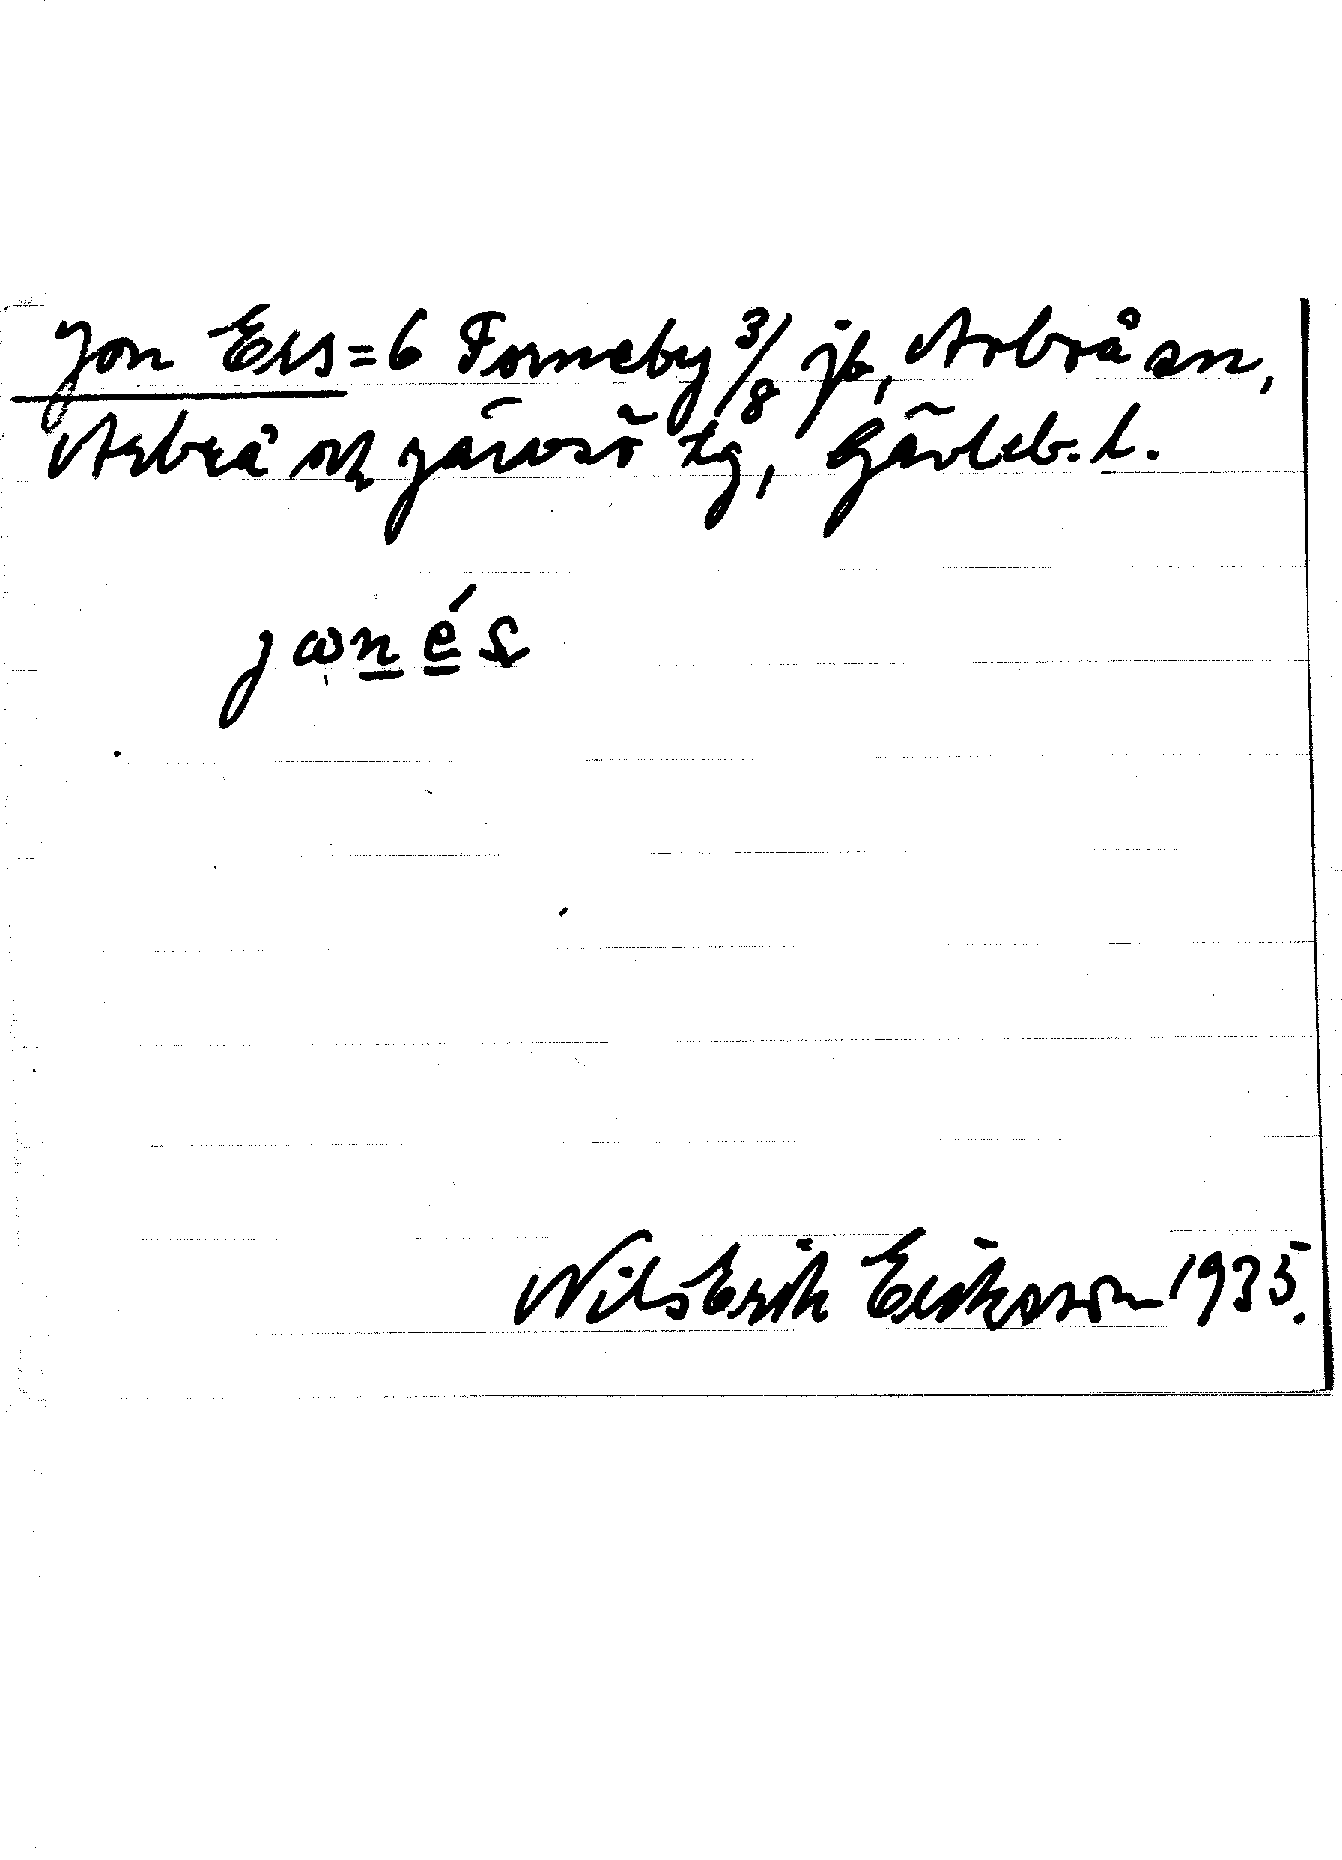 Jon Ers = 6 Forneby 3/8 jb, Arbrå sn,
Arbrå och Järvsö tg, Gävleb. l.
jωnés
Nils Erik Eriksson 1935.